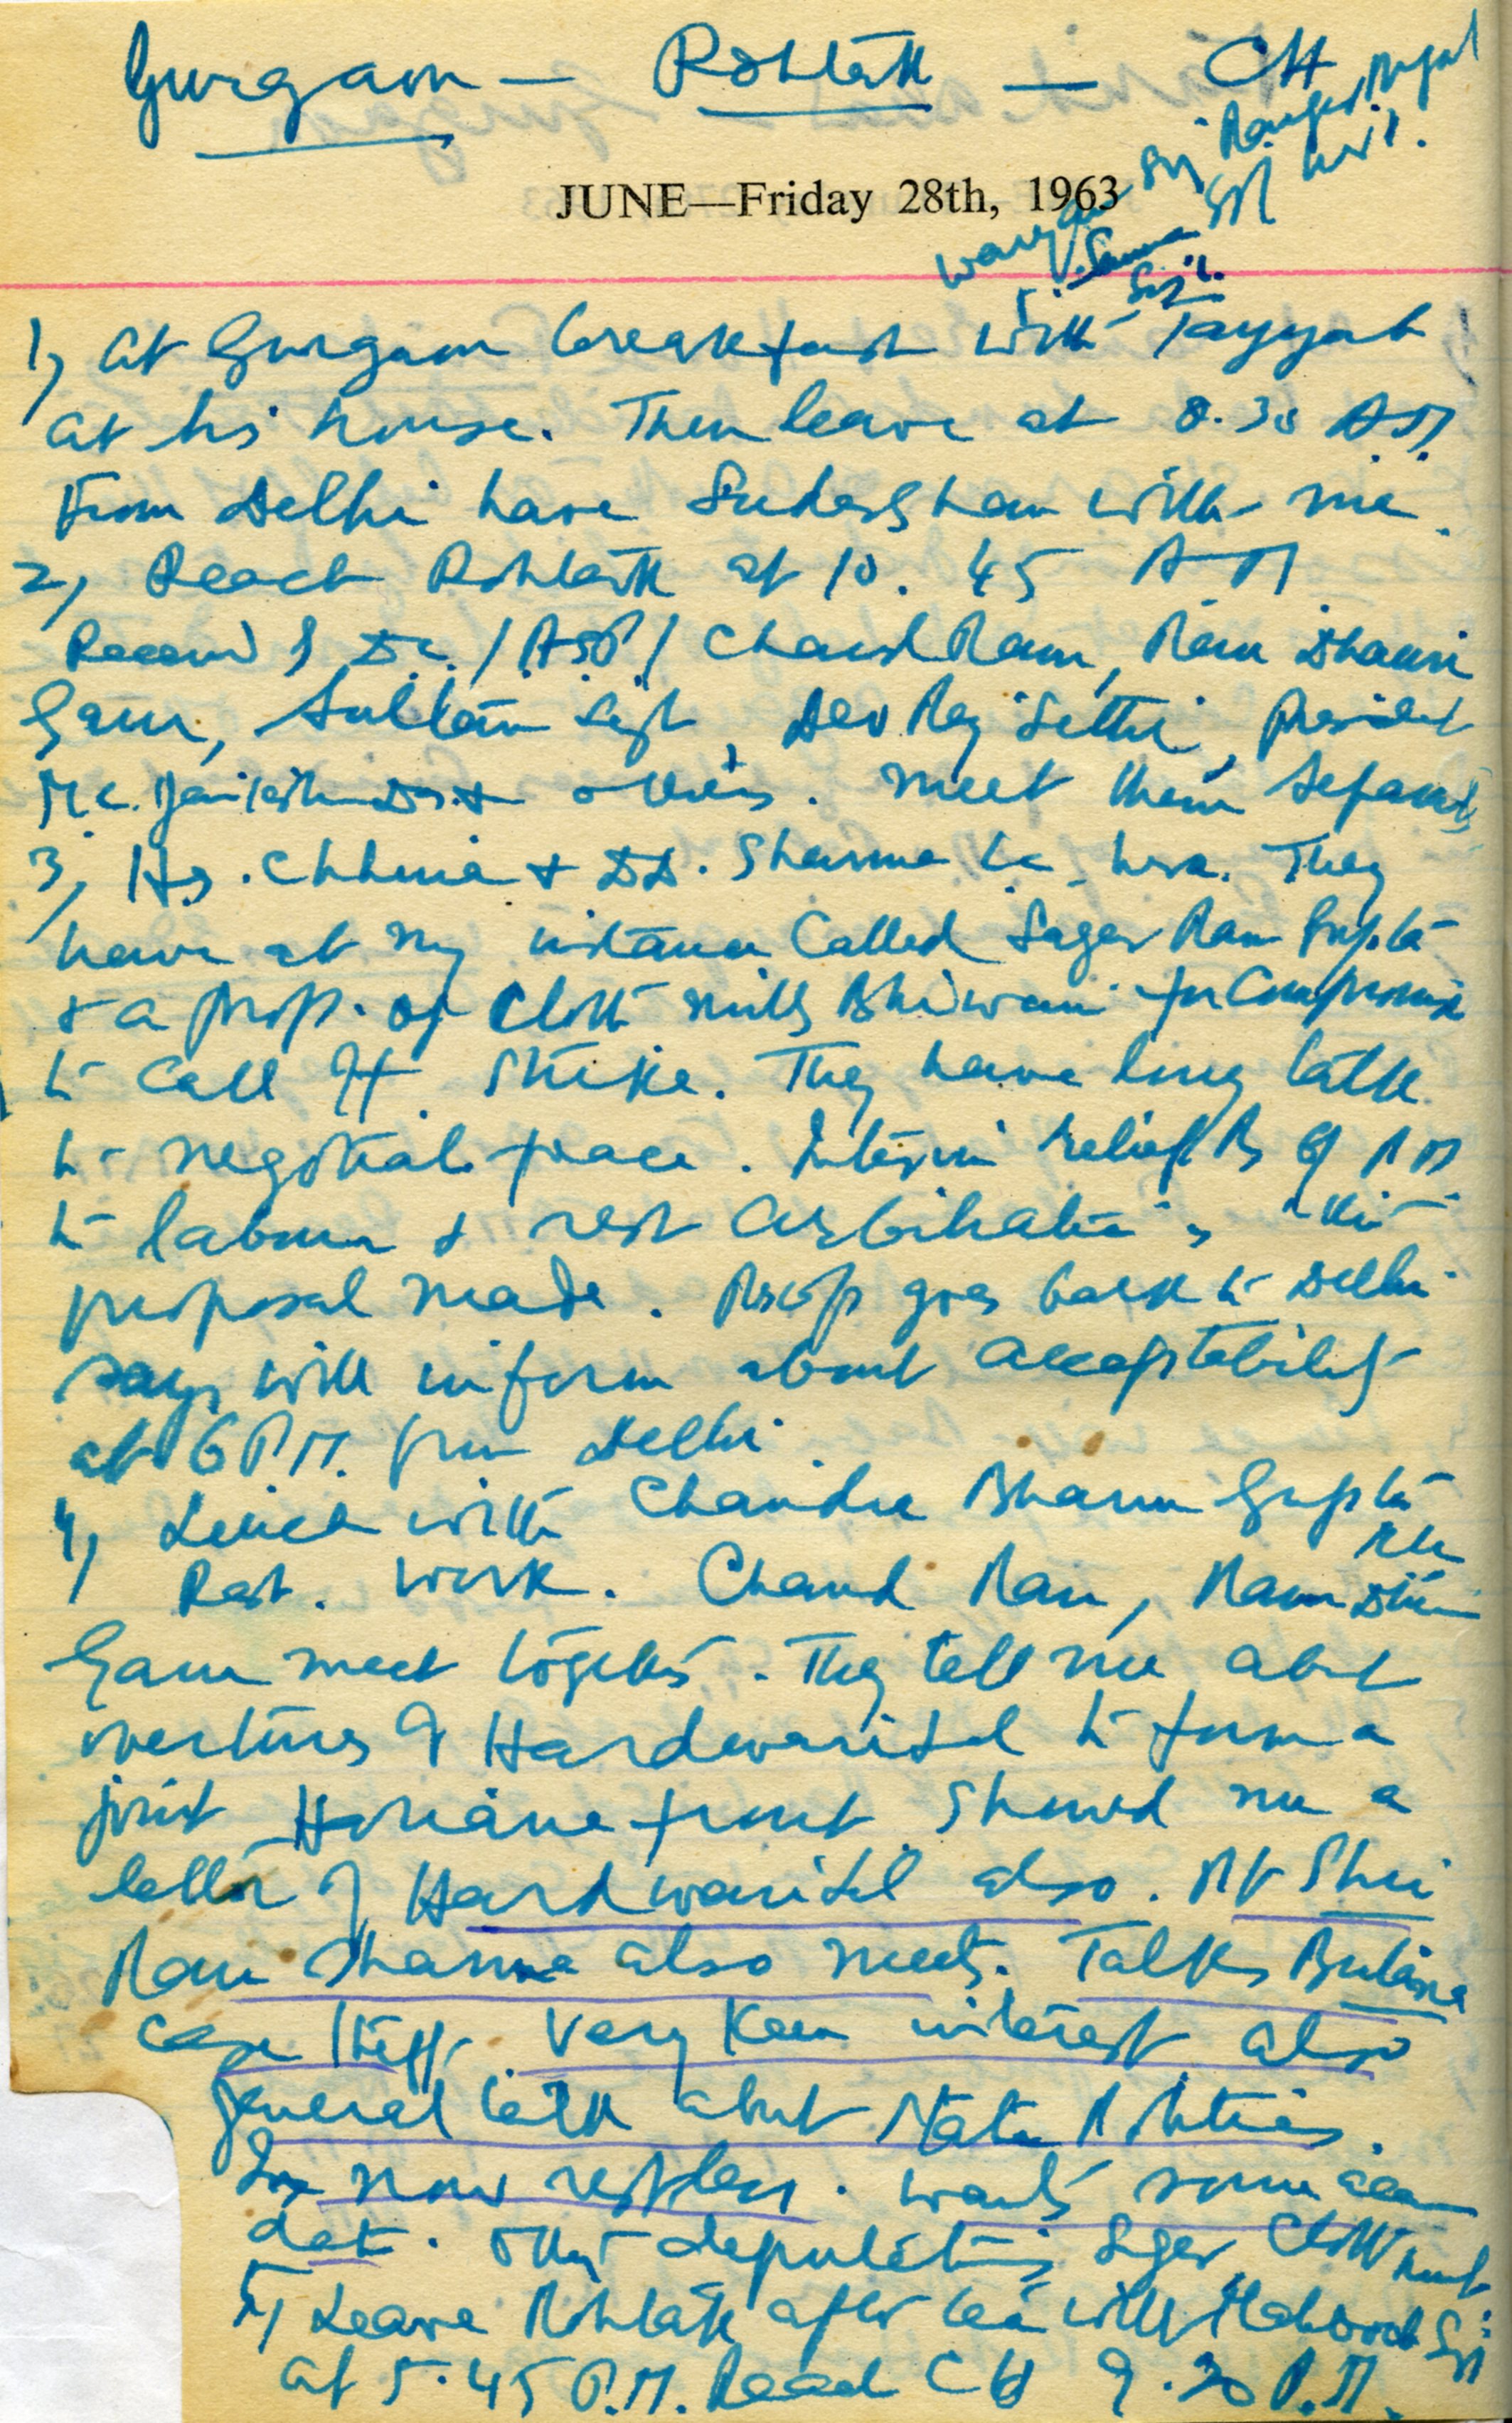 Gurgaon — Rohtak — CH
JUNE—Friday 28th, 1963
1, At Gurgaon breakfast with Tayyab
at his house. Then leave at 8.30 AM
From Delhi have Sudershan with me.
2, Reach Rohtak at 10.45 AM.
Chand Ram, Ram Dhari
Gaur, Sultan Singh, Dev Raj Sethi, President
M.C. & others. Meet them
3, & D.D. Sharma They
have at my instance called Sagar Ram Gupta
& a prop. of Cloth Mills Bhiwani for Compromise
to Call off Strike. They have long talk
to negotiate peace. Interim relief
to labour & rest arbitration is the
proposal made. Prop goes back to Delhi
says will inform about acceptability
at 6 P.M. from Delhi
4, Lunch with Chandra Bhanu Gupta
Rest. Work. Chand Ram, Ram Dhari
Gaur meet together. They tell me about
overtures of Hardwarilal to form a
joint Hariana front showed me a
letter of Hardwarilal also. Pt Shri
Ram Sharma also meets. Talks Butana
case Very Keen interest also
general talk about State Politics.
Is now restless. Wants some
Other deputations, Sugar, Cloth
5, Leave Rohtak after tea with Singh
at 5.45 P.M. Reach CH 9.30 P.M.